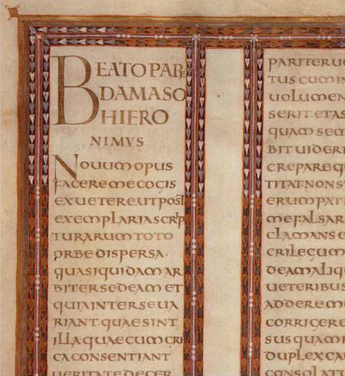 BEATO PAPE
DAMASO
HIERO
NIMVS
Novum opus
facere me cogis
ex uetere ut post
exemplaria scrip
turarum toto
orbe dispersa
quasi quidam ar
biter sedeam et
quia inter se ua
riant quae sint
illa quae cum gre
ca consentiant
ueritate decer
pariter u
tus cum in
uolumen
serit et as
quam sem
bit uideri
crepare q
titat non s
erum pat
me falsar
clamans e
crilegum
de am aliq
ueteribus
addere m
corrigere
sus quam i
duplex ca
consolat